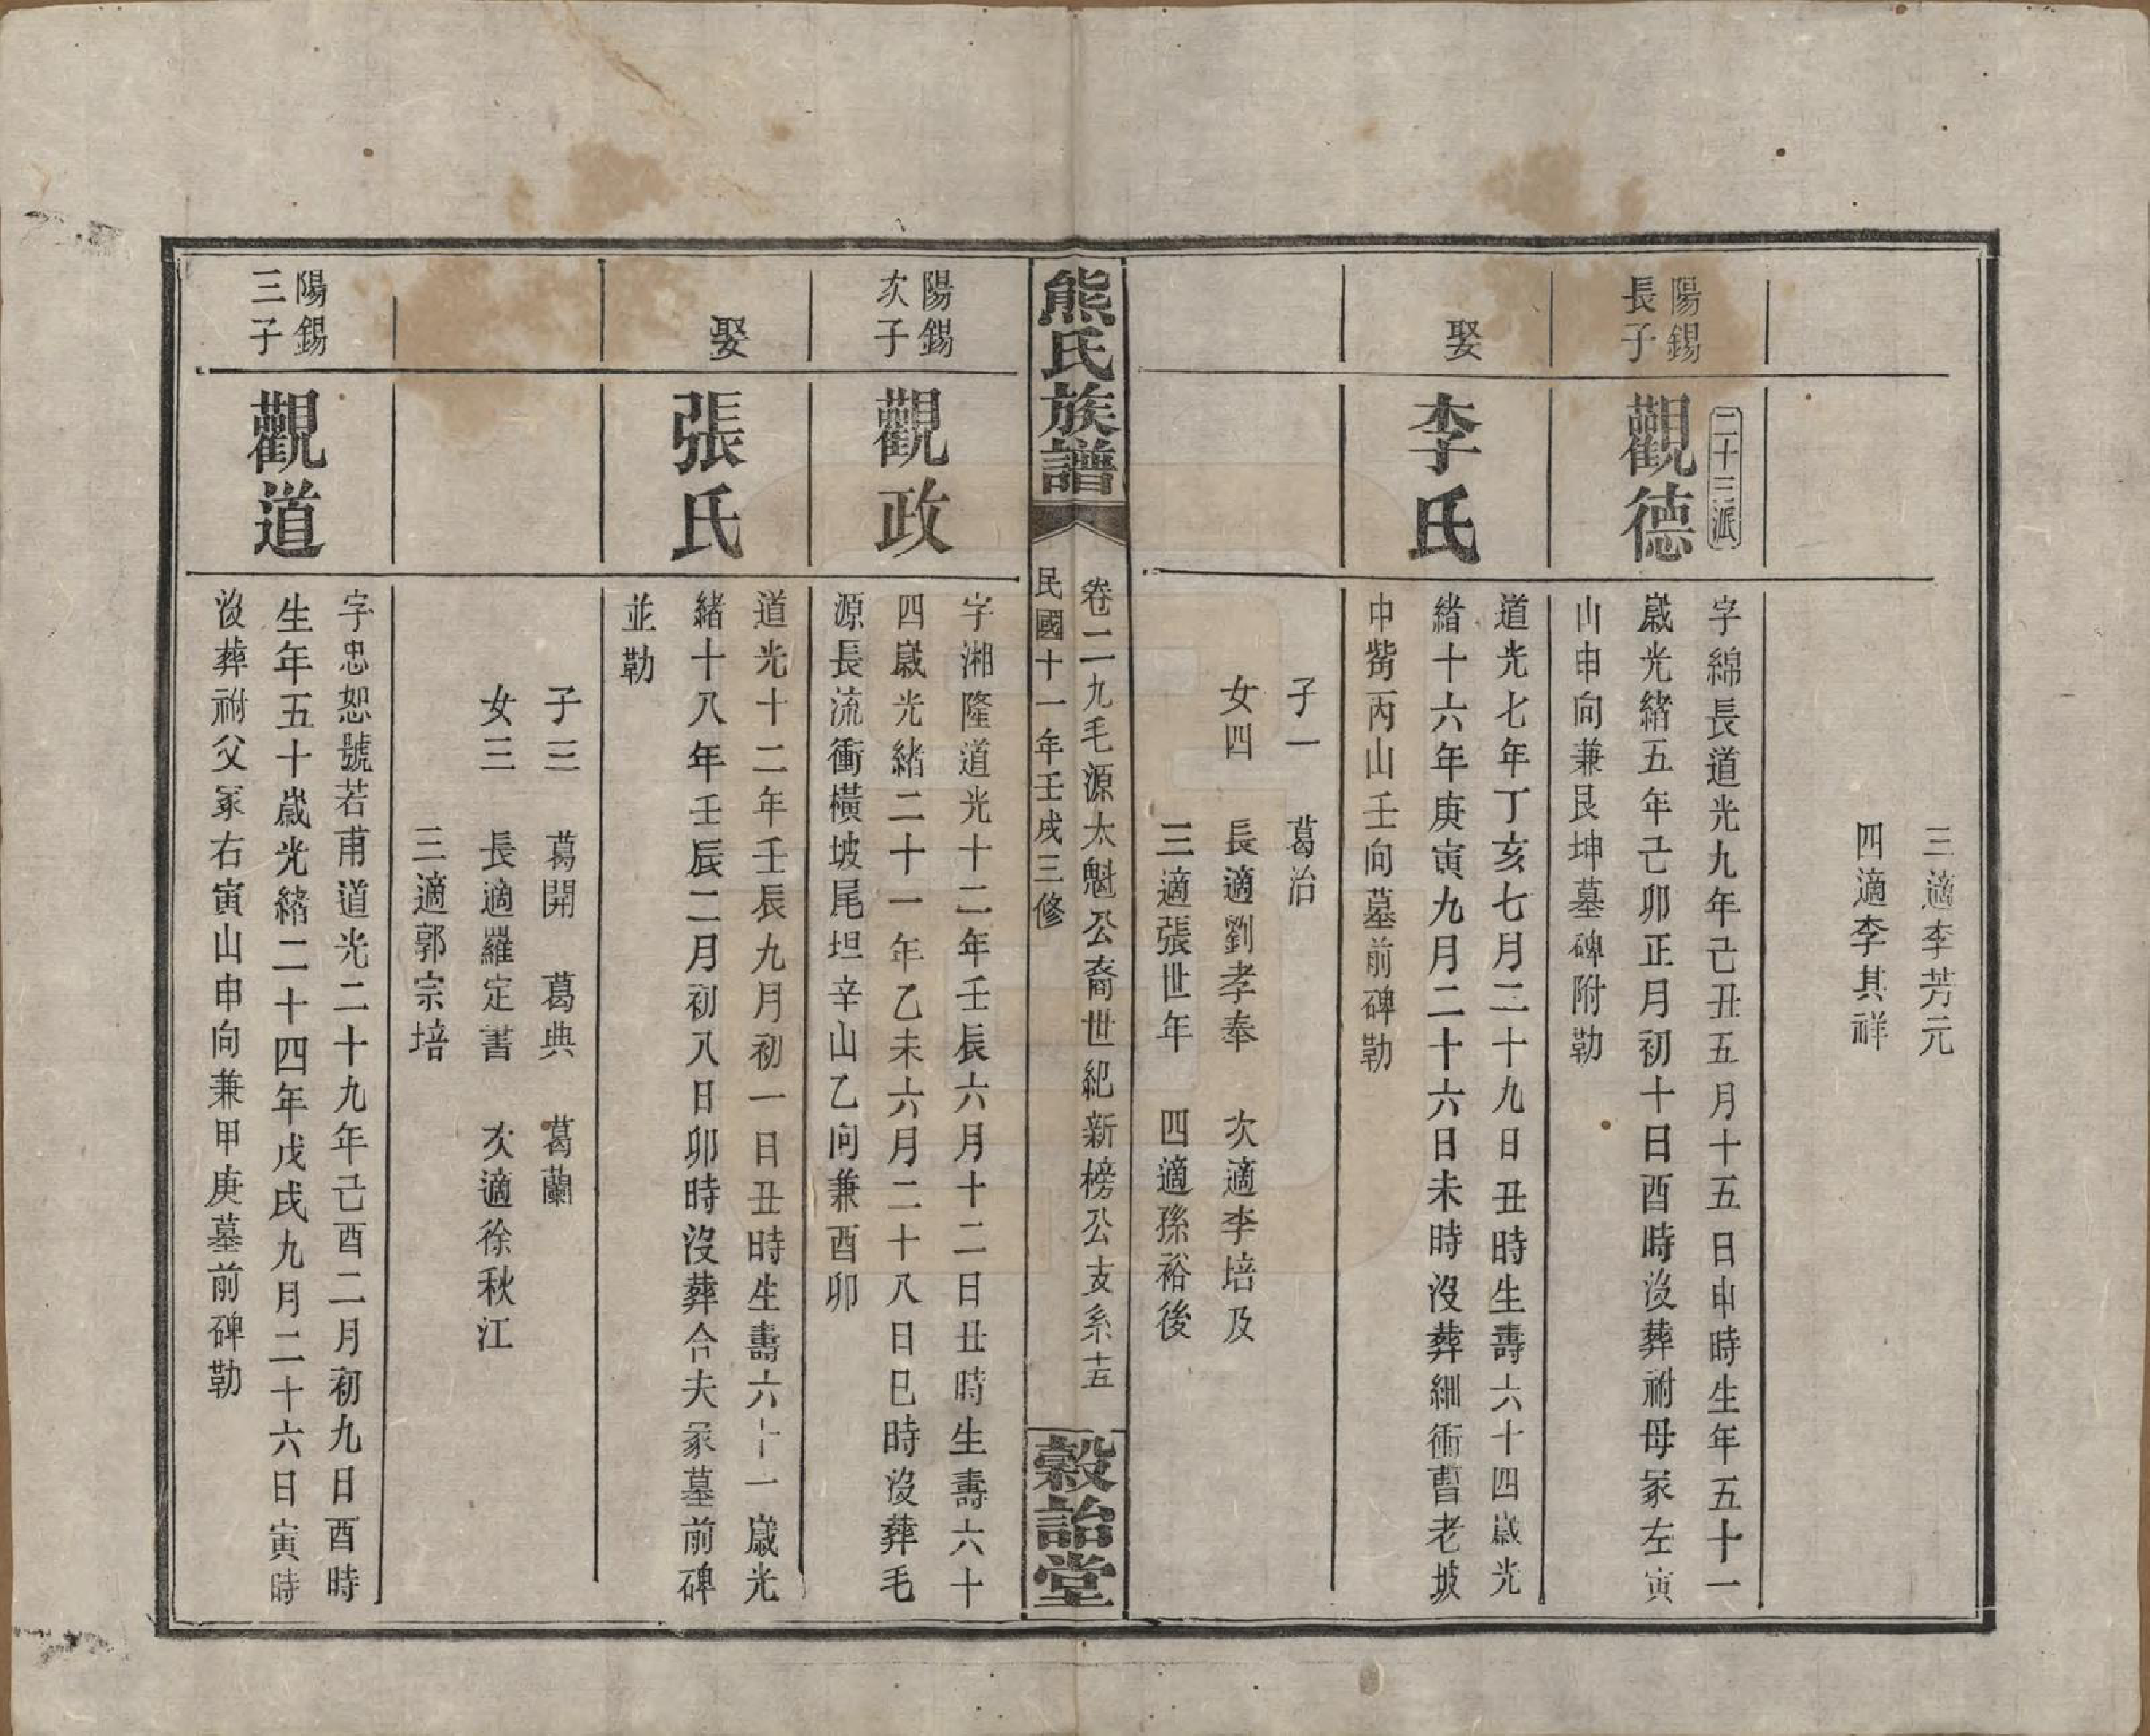 三適李芳元
四適李其祥
二十三派
陽錫
長子
觀德
字綿長道光九年己丑五月十五日申時生年五十一
歲光緒五年己卯正月初十日酉時沒葬祔母冢左寅
山申向兼艮坤墓碑附勒
娶
李氏
道光七年丁亥七月二十九日丑時生壽六十四歲光
緒十六年庚寅九月二十六日未時沒葬細衝曹老坡
中嘴丙山壬向墓前碑勒
子一 葛治
女四 長適劉孝奉 次適李培及
三適張世年 四適孫裕後
熊氏族譜
卷二九毛源太魁公裔世紀新榜公支系 十五
民國十一年壬戌三修
穀詒堂
陽錫
次子
觀政
字湘隆道光十二年壬辰六月十二日丑時生壽六十
四歲光緒二十一年乙未六月二十八日巳時沒葬毛
源長流衝橫坡尾坦辛山乙向兼酉卯
娶
張氏
道光十二年壬辰九月初一日丑時生壽六十一歲光
緒十八年壬辰二月初八日卯時沒葬合夫冢墓前碑
並勒
子三 葛開 葛典 葛蘭
女三 長適羅定書 次適徐秋江
三適郭宗培
陽錫
三子
觀道
字忠恕號若甫道光二十九年己酉二月初九日酉時
生年五十歲光緒二十四年戊戌九月二十六日寅時
沒葬祔父冢右寅山申向兼甲庚墓前碑勒